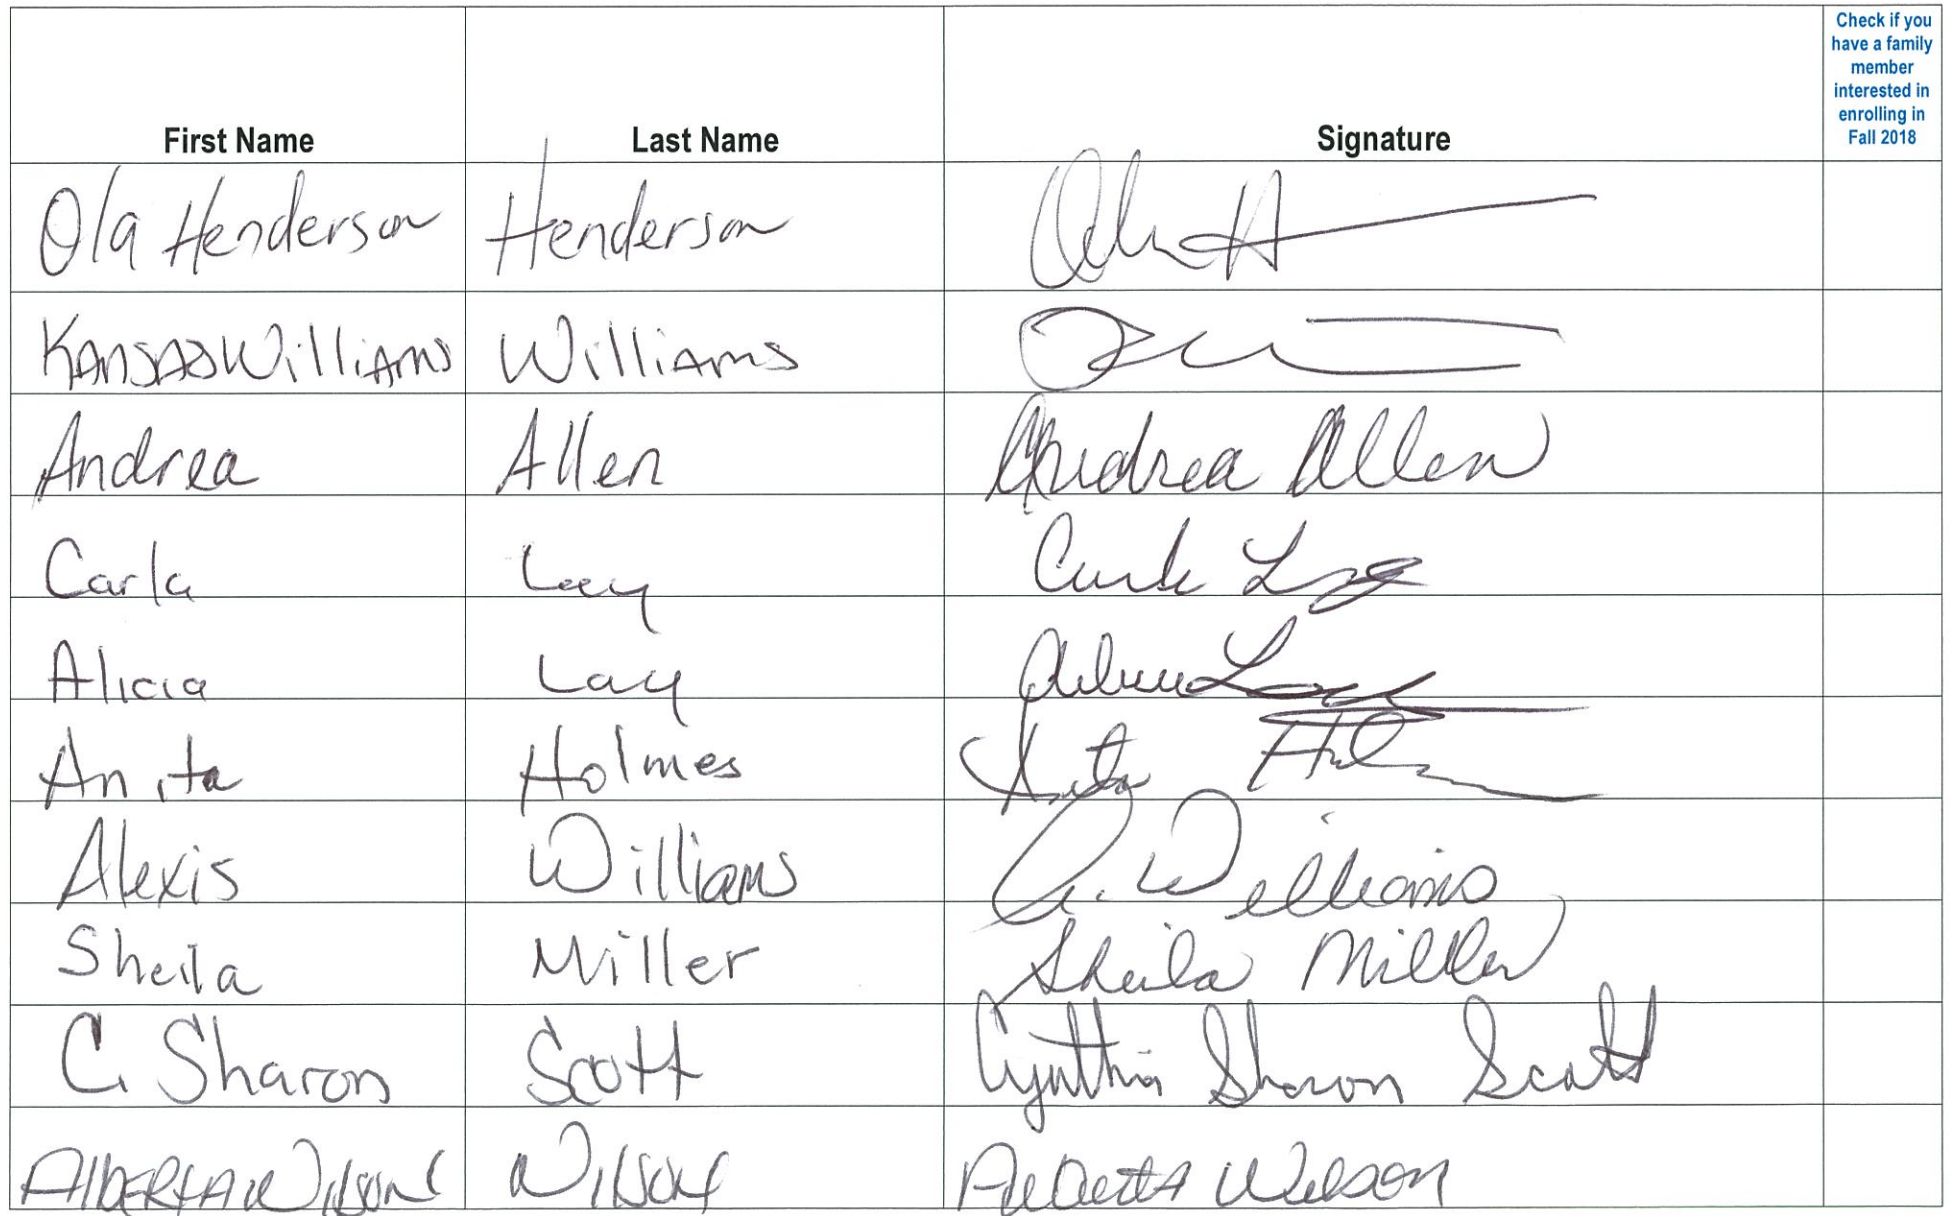 First Name Last Name Signature Check if you
have a family
member
interested in
enrolling in
Fall 2018
Ola Henderson Henderson
Kansas Williams Williams
Andrea Allen Andrea Allen
Carla Lay
Alicia Lay
Anita Holmes Anita
Alexis Williams A. Williams
Sheila Miller Sheila Miller
C. Sharon Scott Cynthia Sharon Scott
Alberta Wilson Wilson Alberta Wilson